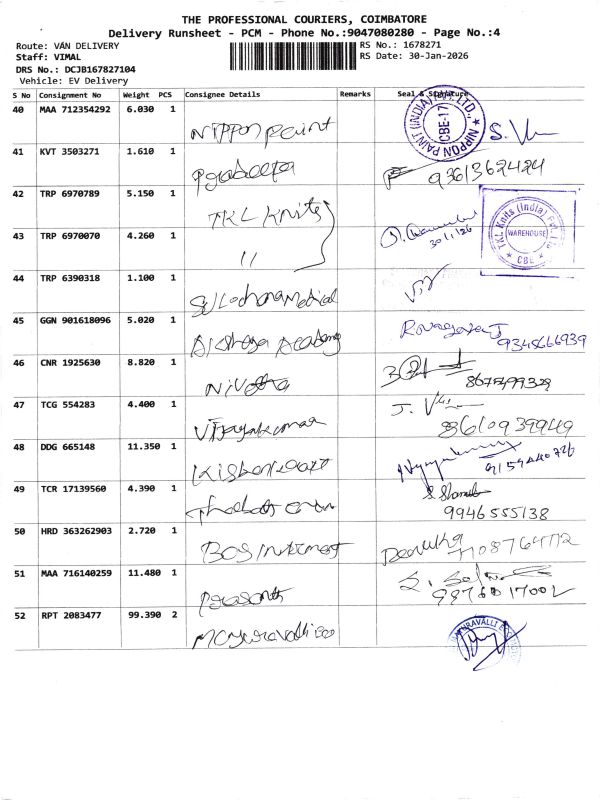 THE PROFESSIONAL COURIERS, COIMBATORE
Delivery Runsheet - PCM - Phone No.:9047080280 - Page No.:4
Route: VAN DELIVERY
RS No.: 1678271
Staff: VIMAL
RS Date: 30-Jan-2026
DRS No.: DCJB167827104
Vehicle: EV Delivery
S No Consignment No Weight PCS Consignee Details Remarks Seal & Signature
40 MAA 712354292 6.030 1 Nippon paint
NIPPON PAINT (INDIA) PVT. LTD., CBE-17
41 KVT 3503271 1.610 1 Pradeepa 9361362424
42 TRP 6970789 5.150 1 TKL Knits 30/1/26
TKL Knits (India) Pvt. Ltd WAREHOUSE * CBE *
43 TRP 6970070 4.260 1 11
44 TRP 6390318 1.100 1 Sulochana Medical
45 GGN 901618096 5.020 1 Academy 9345666939
46 CNR 1925630 8.820 1 Nivetha
47 TCG 554283 4.400 1 Vijayakumar
48 DDG 665148 11.350 1
49 TCR 17139560 4.390 1 9946555138
50 HRD 363262903 2.720 1 Devika
51 MAA 716140259 11.480 1 Prasanth
52 RPT 2083477 99.390 2